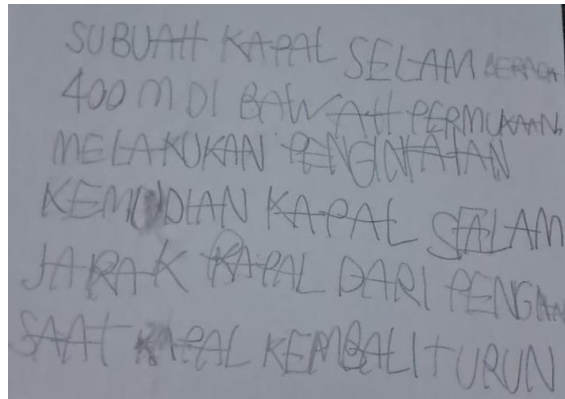 SUBUAH KAPAL SELAM BERADA
400 M DI BAWAH PERMUKAAN
MELAKUKAN PENGINTATAN
KEMUDIAN KAPAL SELAM
JARAK KAPAL DARI
SAAT KAPAL KEMBALI TURUN